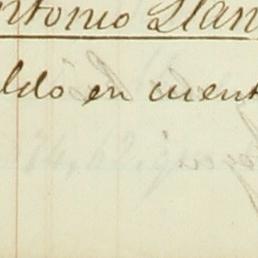 ntonio Llan
ldo en cuent